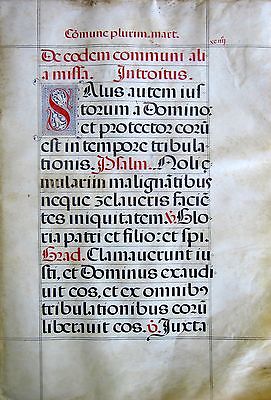 Cōmune plurim. mart.
xciiij
De eodem communi ali
a missa. Introitus.
SAlus autem ius
torum a Domino:
et protector corū
est in tempore tribula
tionis. Psalm. Noli ę
mulari in malignātibus
neque zelaveris faciē
tes iniquitatem ℣ Glo
ria patri et filio: et spi.
Grad. Clamaverunt iu
sti, et Dominus exaudi
uit eos, et ex omnibꝰ
tribulationibus eorū
liberauit eos. ℣ Juxta